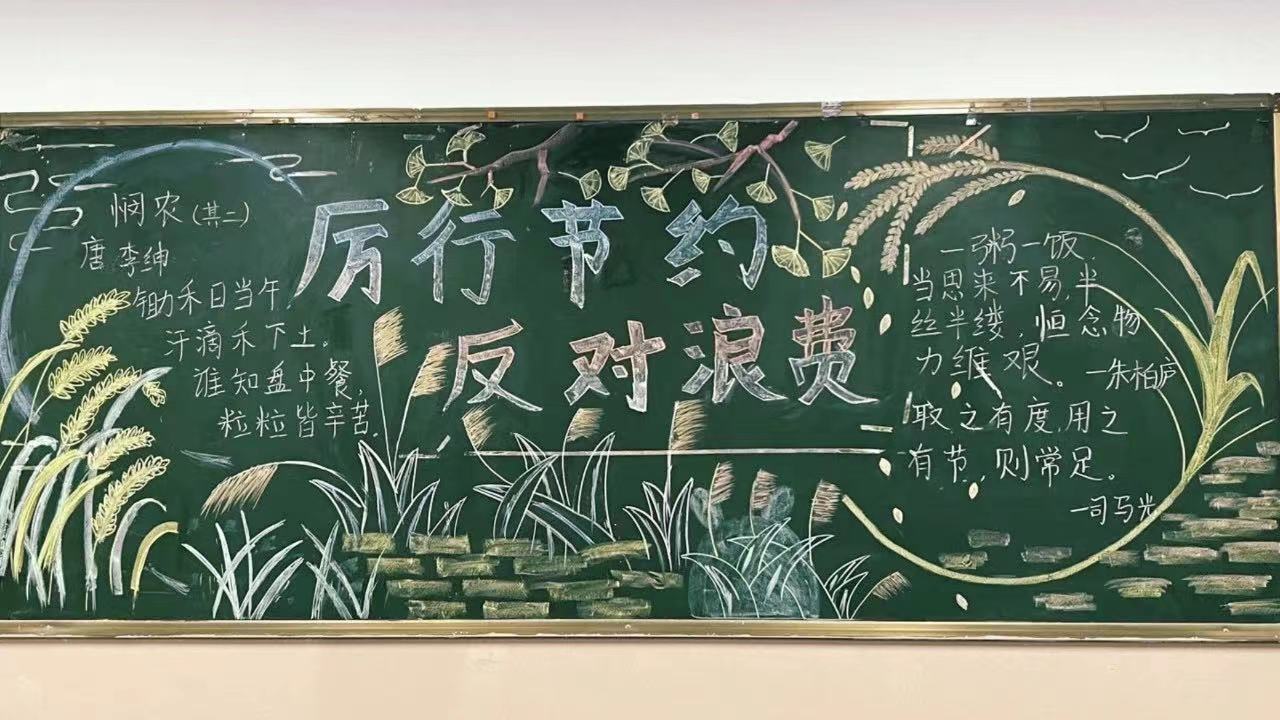 悯农(其二)
唐 李绅
锄禾日当午,
汗滴禾下土。
谁知盘中餐,
粒粒皆辛苦.
厉行节约
反对浪费
一粥一饭,
当思来不易,半
丝半缕,恒念物
力维艰。—朱柏庐
取之有度,用之
有节,则常足。
—司马光